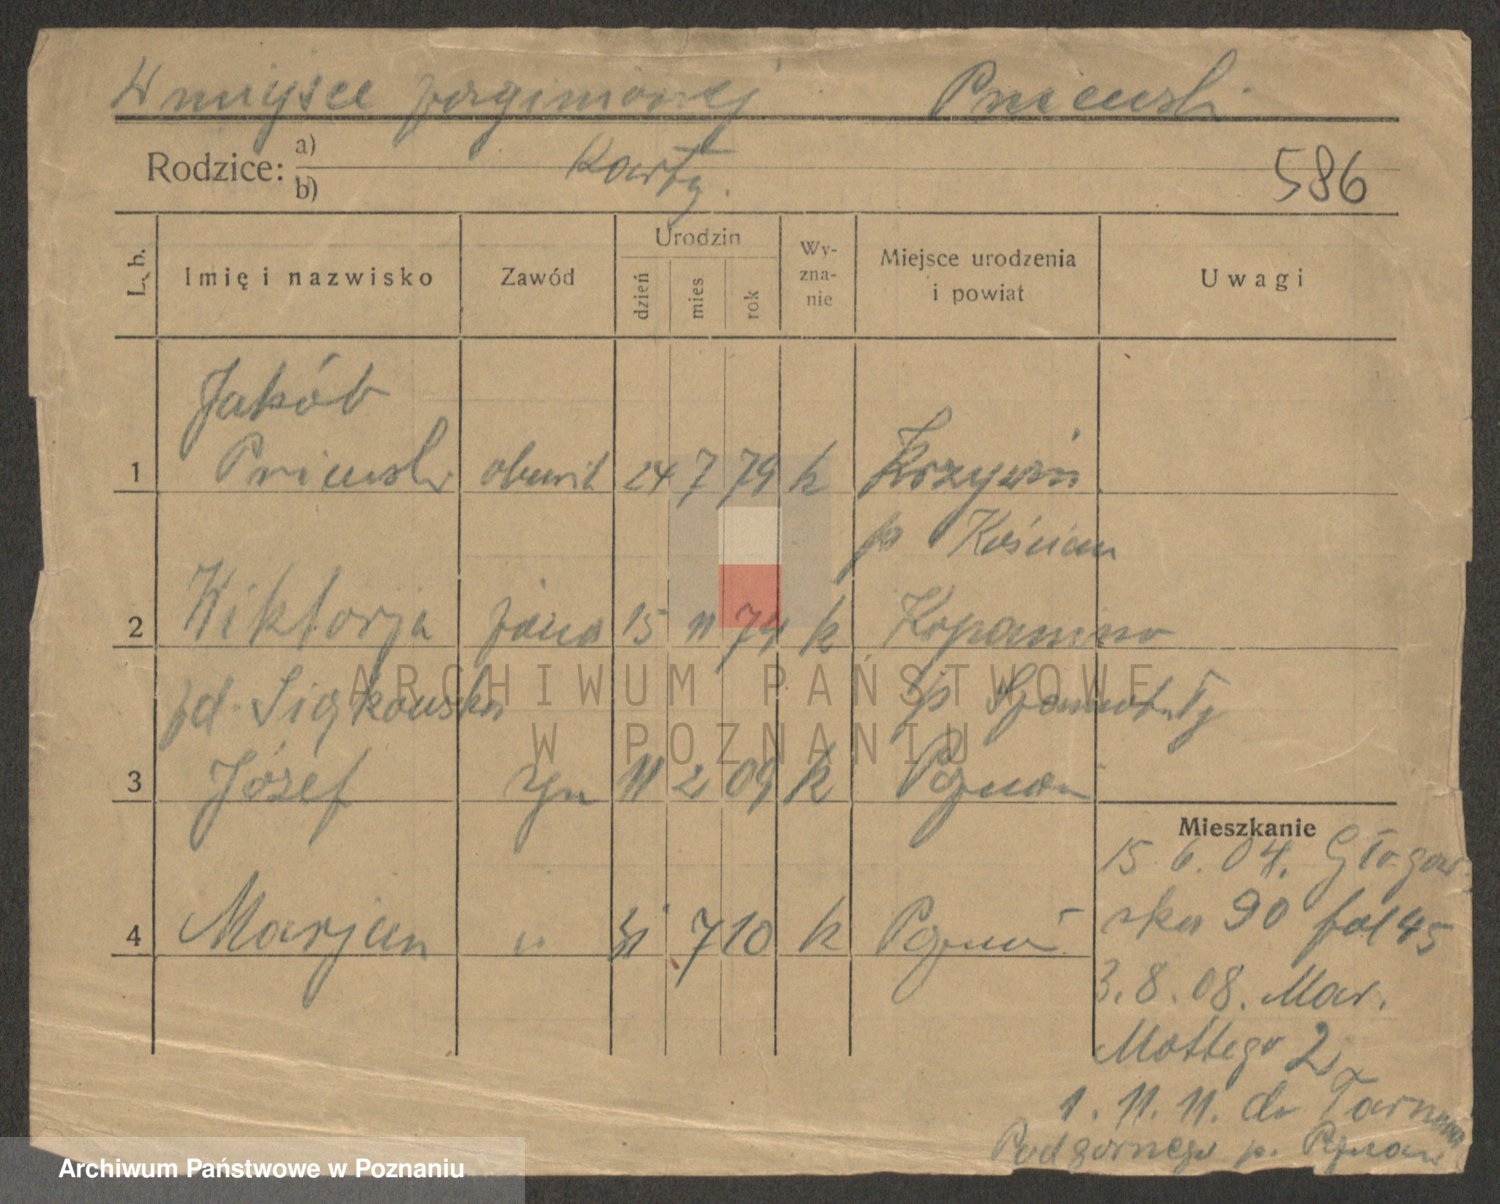 W miejsce zaginionej Pniewski
Rodzice: a)
b)
Karty.
586
L. b.
Imię i nazwisko
Zawód
Urodzin
dzień
mies
rok
Wy-
zna-
nie
Miejsce urodzenia
i powiat
Uwagi
Jakób
1 Pniewski 24 7 79 k Krzywiń
p Kościan
2 Wiktorja żona 15 11 74 k
p. Szamotuły
3 Józef syn 11 2 09 k Poznań
4 Marjan " 31 7 10 k Poznań
Mieszkanie
15 6. 04. Głogow-
ska 90 fol 45
3. 8. 08. Mar.
Mottego 2
1. 11. 11. do Tarnowa
Podgórnego p. Poznań
ARCHIWUM PAŃSTWOWE
W POZNANIU
Archiwum Państwowe w Poznaniu